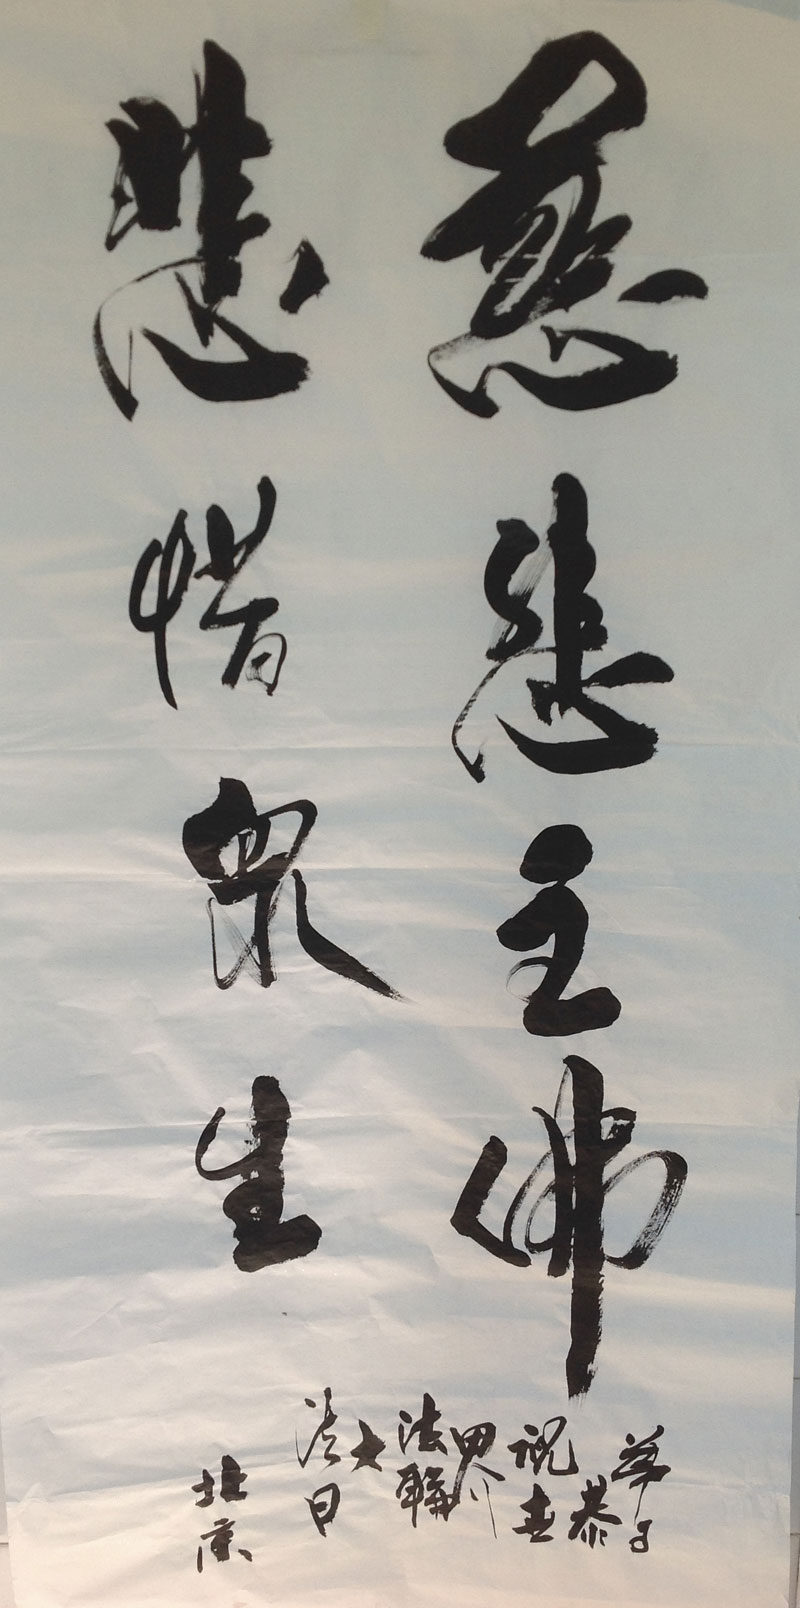 慈悲主佛
悲惜眾生
弟子
恭
祝世
界
法輪
大
法日
北京